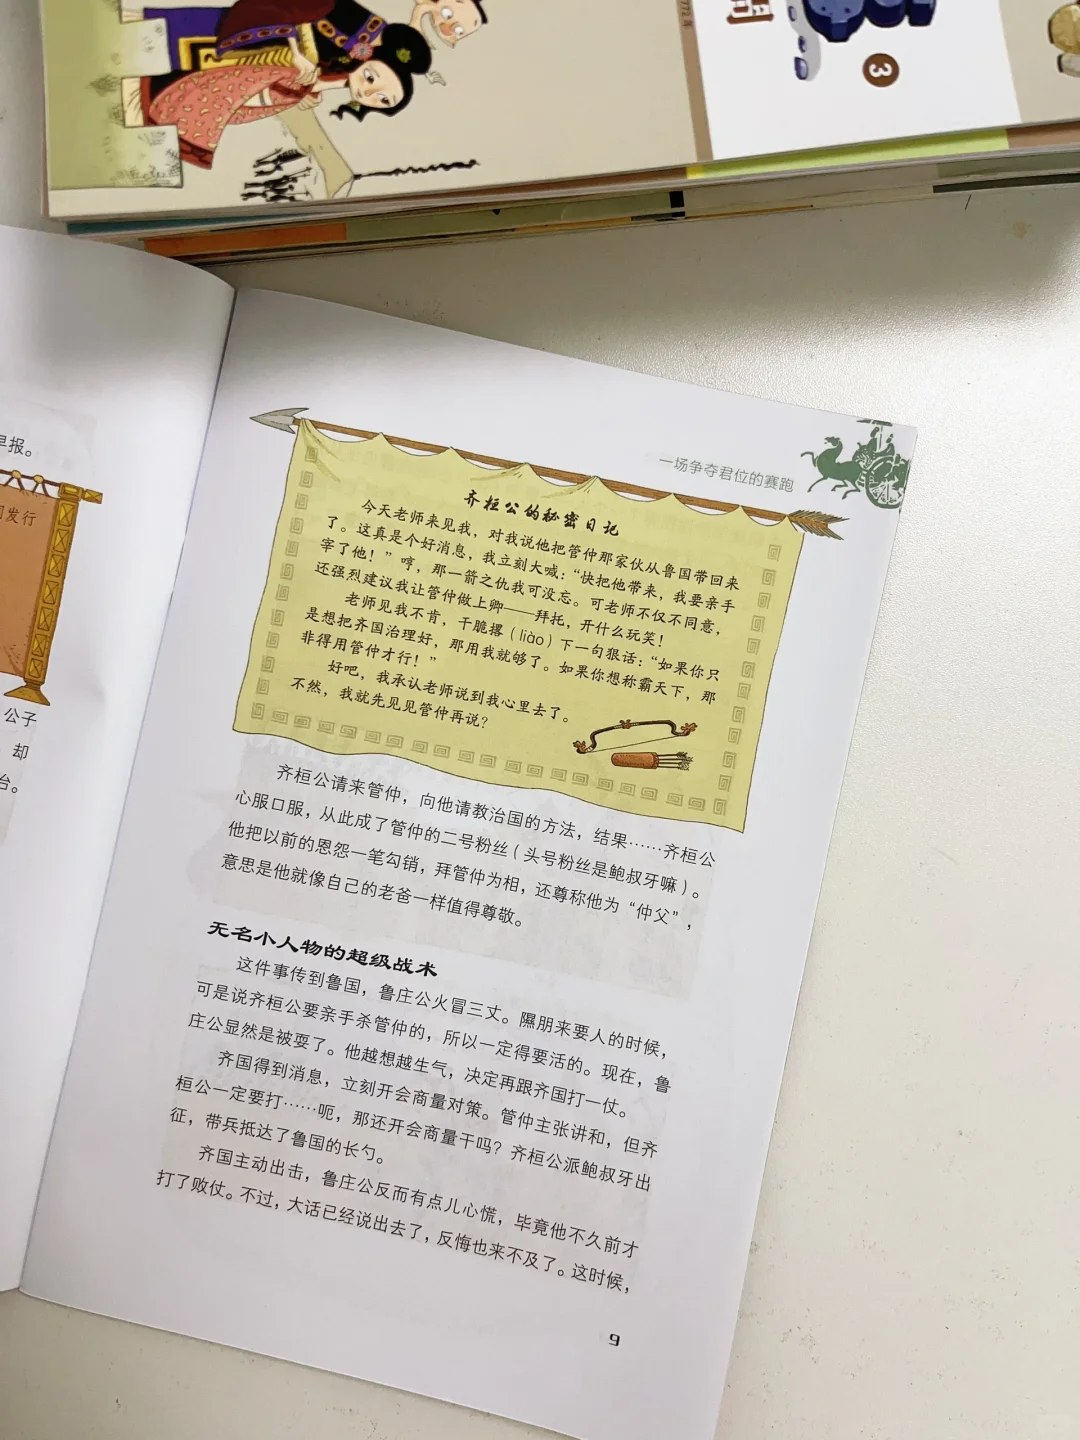 3
早报。
国发行
公子
却
台。
一场争夺君位的赛跑
齐桓公的秘密日记
今天老师来见我，对我说他把管仲那家伙从鲁国带回来
了。这真是个好消息，我立刻大喊：“快把他带来，我要亲手
宰了他！”哼，那一箭之仇我可没忘。可老师不仅不同意，
还强烈建议我让管仲做上卿——拜托，开什么玩笑！
老师见我不肯，干脆撂（liào）下一句狠话：“如果你只
是想把齐国治理好，那用我就够了。如果你想称霸天下，那
非得用管仲才行！”
好吧，我承认老师说到我心里去了。
不然，我就先见见管仲再说？
齐桓公请来管仲，向他请教治国的方法，结果……齐桓公
心服口服，从此成了管仲的二号粉丝（头号粉丝是鲍叔牙嘛）。
他把以前的恩怨一笔勾销，拜管仲为相，还尊称他为“仲父”，
意思是他就像自己的老爸一样值得尊敬。
无名小人物的超级战术
这件事传到鲁国，鲁庄公火冒三丈。隰朋来要人的时候，
可是说齐桓公要亲手杀管仲的，所以一定得要活的。现在，鲁
庄公显然是被耍了。他越想越生气，决定再跟齐国打一仗。
齐国得到消息，立刻开会商量对策。管仲主张讲和，但齐
桓公一定要打……呃，那还开会商量干吗？齐桓公派鲍叔牙出
征，带兵抵达了鲁国的长勺。
齐国主动出击，鲁庄公反而有点儿心慌，毕竟他不久前才
打了败仗。不过，大话已经说出去了，反悔也来不及了。这时候，
9